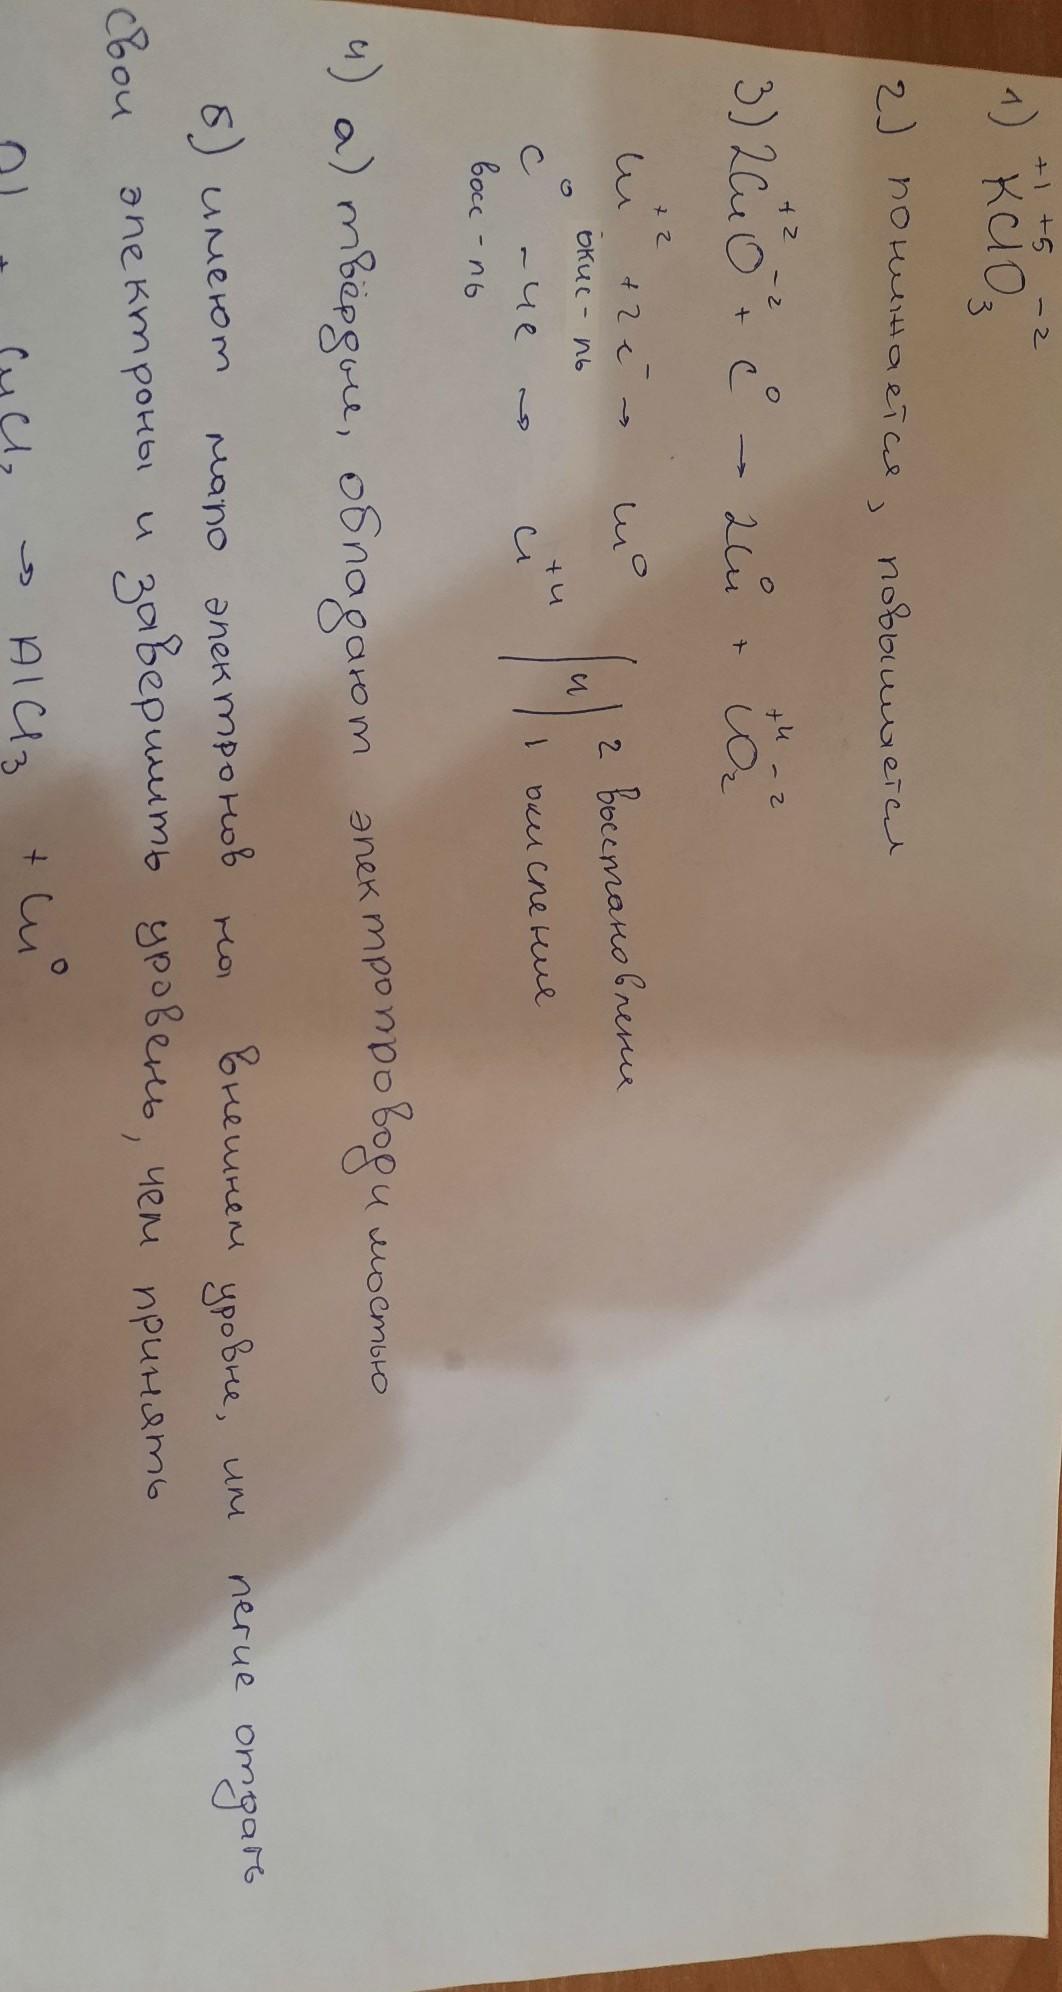 1) K⁺¹Cl⁺⁵O₃⁻²
2) понижается, повышается
3) 2Cu⁺²O⁻² + C⁰ → 2Cu⁰ + C⁺⁴O₂⁻²
Cu⁺² + 2e⁻ → Cu⁰ | 4 | 2 восстановление
окис-ль
C⁰ - 4e → C⁺⁴ | | 1 окисление
вос-ль
4) а) твёрдые, обладают электропроводимостью
б) имеют мало электронов на внешнем уровне, им легче отдать
свои электроны и завершить уровень, чем принять
Al + CuCl₂ → AlCl₃ + Cu⁰